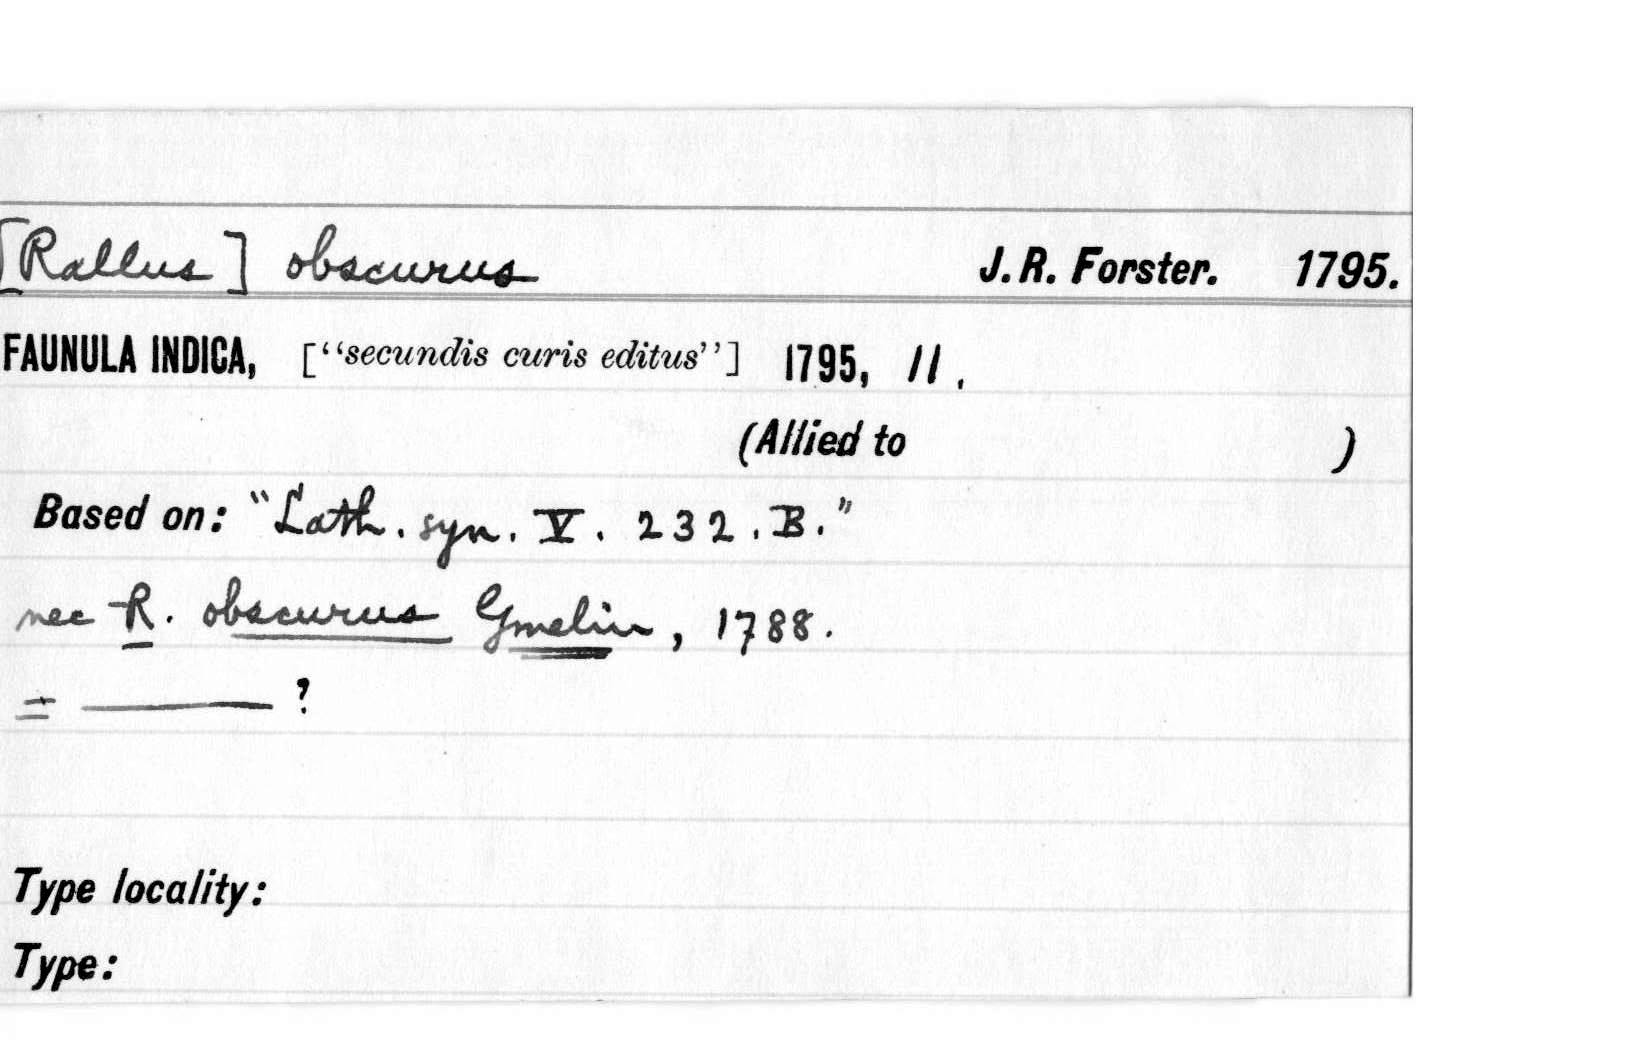 [Rallus] obscurus J. R. Forster. 1795.
FAUNULA INDICA, [“secundis curis editus”] 1795, 11.
(Allied to )
Based on: "Lath. syn. V. 232. B."
nec R. obscurus Gmelin, 1788.
= ——— ?
Type locality:
Type: